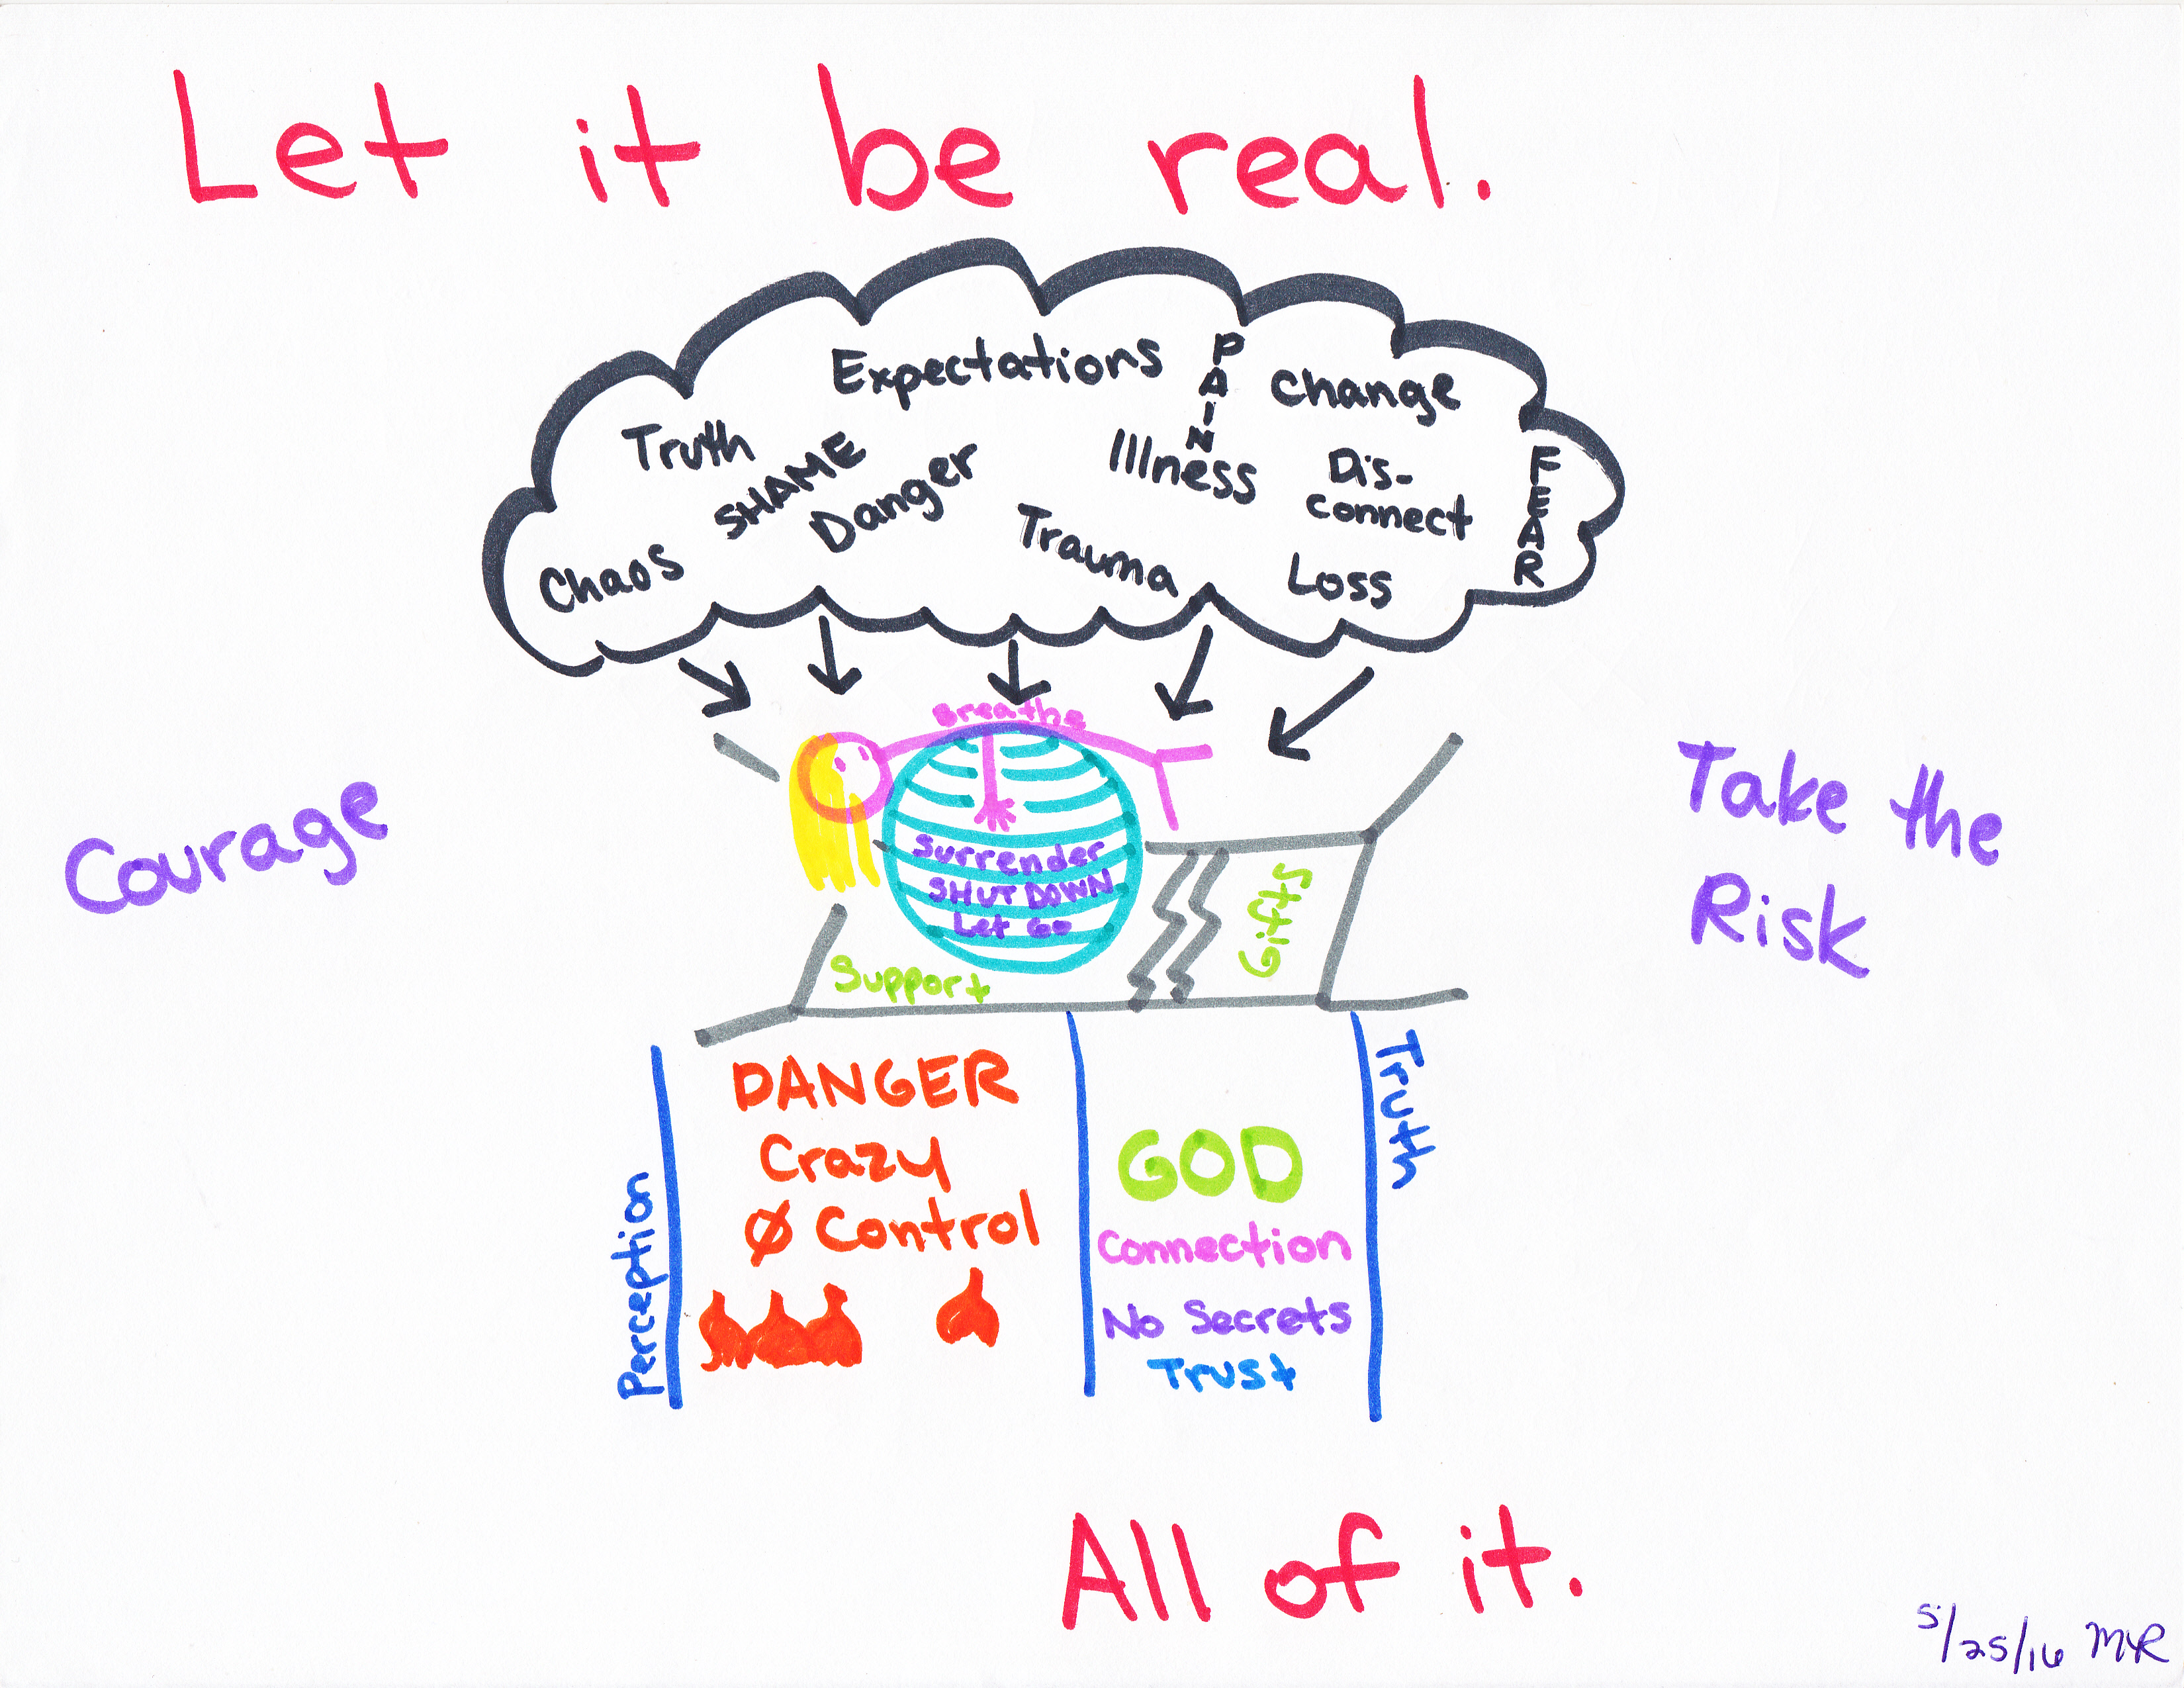 Let it be real.
Expectations
PAIN
Change
Truth
SHAME
Danger
Illness
Dis-
connect
FEAR
Chaos
Trauma
Loss
Breathe
Courage
Take the
Risk
Surrender
SHUT DOWN
Let Go
Support
Gifts
Perception
DANGER
Crazy
Ø Control
GOD
Connection
No Secrets
Trust
Truth
All of it.
5/25/16 MR